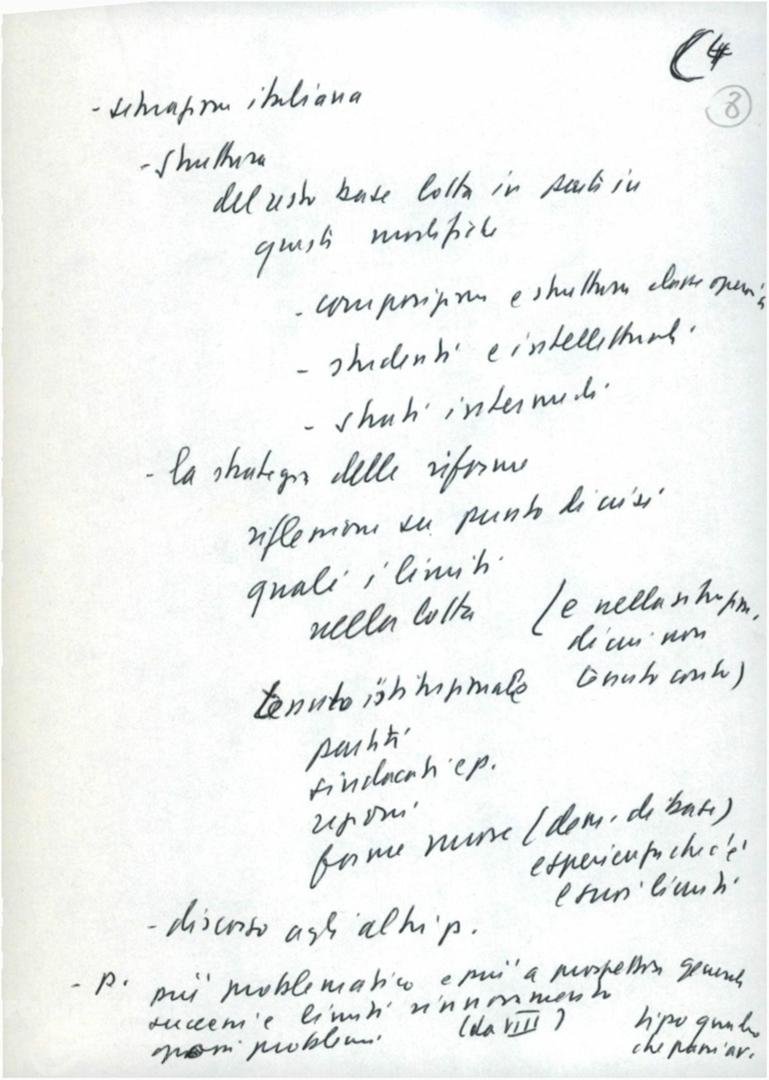 4
8
- situazione italiana
- struttura
del resto base lotta in
questi modifiche
- composizione e struttura classe operaia
- studenti e intellettuali
- strati intermedi
- la strategia delle riforme
riflessione su punto di crisi
quali i limiti
nella lotta (e nella situazione,
di cui non
tenuto conto)
tenuto istituzionale
partiti
sindacati e p.
regioni
forme nuove (dem. di base)
esperienza che c'è
e suoi limiti
- discorso agli altri p.
- p. più problematico e più a prospettiva generale
successi e limiti rinnovamento
(da VIII) tipo quadro
problemi che